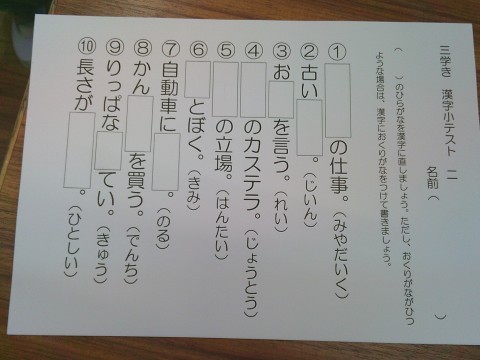 三学き 漢字小テスト 二
名前（　　　　　　）
（　　）のひらがなを漢字に直しましょう。ただし、おくりがながひつ
ような場合は、漢字におくりがなをつけて書きましょう。
① の仕事。（みやだいく）
② 古い 。（じいん）
③ お を言う。（れい）
④ のカステラ。（じょうとう）
⑤ の立場。（はんたい）
⑥ とぼく。（きみ）
⑦ 自動車に 。（のる）
⑧ かん を買う。（でんち）
⑨ りっぱな てい。（きゅう）
⑩ 長さが 。（ひとしい）